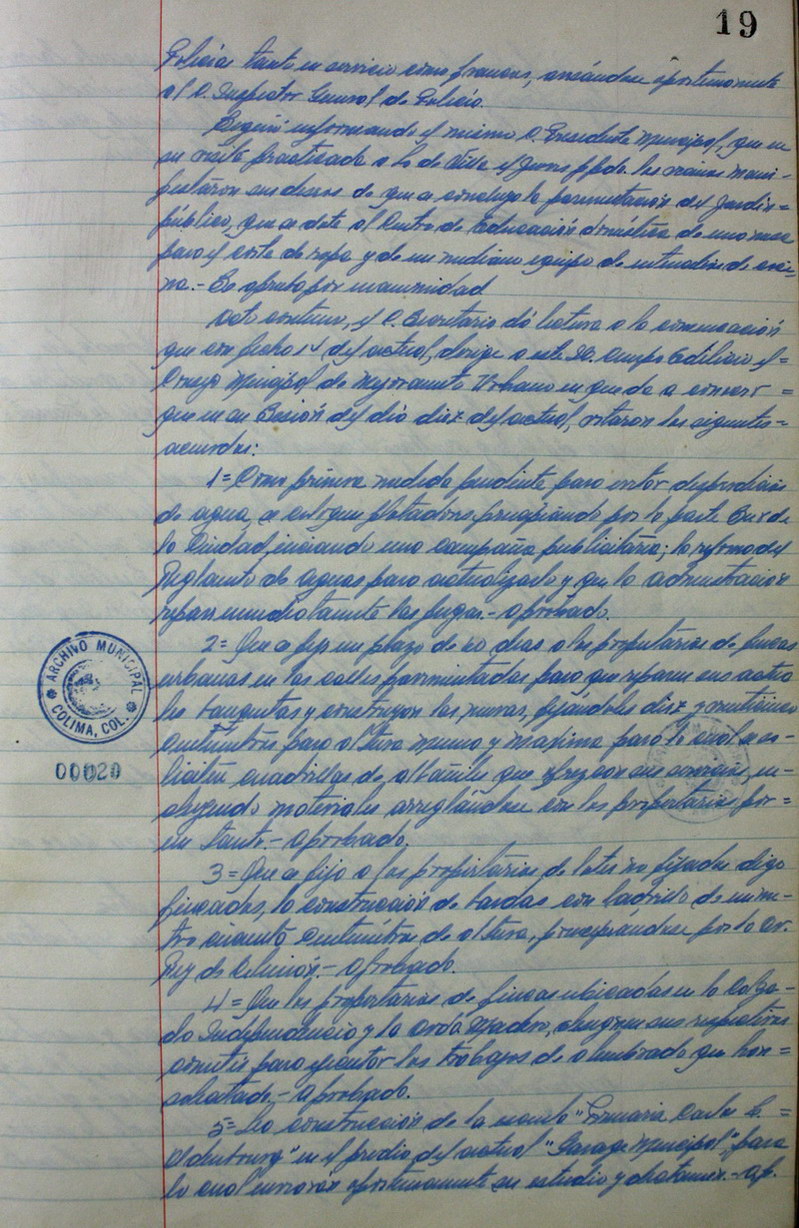 19
Policías tanto en servicio como francos, avisándose oportunamente
al C. Inspector General de Policía.
Siguió informando el mismo C. Presidente Municipal, que en
su visita practicada a Lo de Villa el Jueves ppdo. los vecinos mani-
festaron sus deseos de que se concluya la pavimentación del Jardín=
público, que se dote al Centro de Educación doméstica de una mesa
para el corte de ropa y de un mediano equipo de utensilios de coci-
na.- Se aprobó por unanimidad
Acto continuo, el C. Secretario dá lectura a la comunicación
que con fecha del actual, dirige a este H. Cuerpo Edilicio el=
Consejo Municipal de Mejoramiento Urbano en que da a conocer=
que en su Sesión del día diez del actual, votaron los siguientes=
acuerdos:
1= Como primera medida pendiente para evitar desperdicio
de agua, se coloquen flotadores, principiando por la parte Sur de
la Ciudad, iniciando una campaña publicitaria; la reforma del
Reglamento de aguas para actualizarlo y que la administración
repare inmediatamente las fugas.- aprobado.
2= Que se fije un plazo de 60 dias a los propietarios de fincas
urbanas en las calles pavimentadas para que reparen sus actua
les banquetas y construyan las nuevas, fijándoles diez y
centímetros para altura mínima y máxima para lo cual se so-
liciten cuadrillas de albañiles que ofrezcan sus servicios, in-
cluyendo materiales arreglándose con los propietarios por=
su tanto.- aprobado.
3= Que se fije a los propietarios de lotes no fijados digo
fincados, la construcción de bardas con ladrillo de un me-
tro cincuenta centímetros de altura, principiándose por la Av.
Rey de Colimán.- aprobado.
4= Que los propietarios de fincas ubicadas en la Calza-
da Independencia y la Avda Madero, otorguen sus respectivos
para ejecutar los trabajos de alumbrado que han=
solicitado.- aprobado.
5= La construcción de la escuela "Primaria Carlos L. =
Oldenbourg" en el predio del actual "Garage Municipal", para
lo cual enviarán oportunamente su estudio y dictamen.- ap.
ARCHIVO MUNICIPAL
COLIMA, COL.
00020